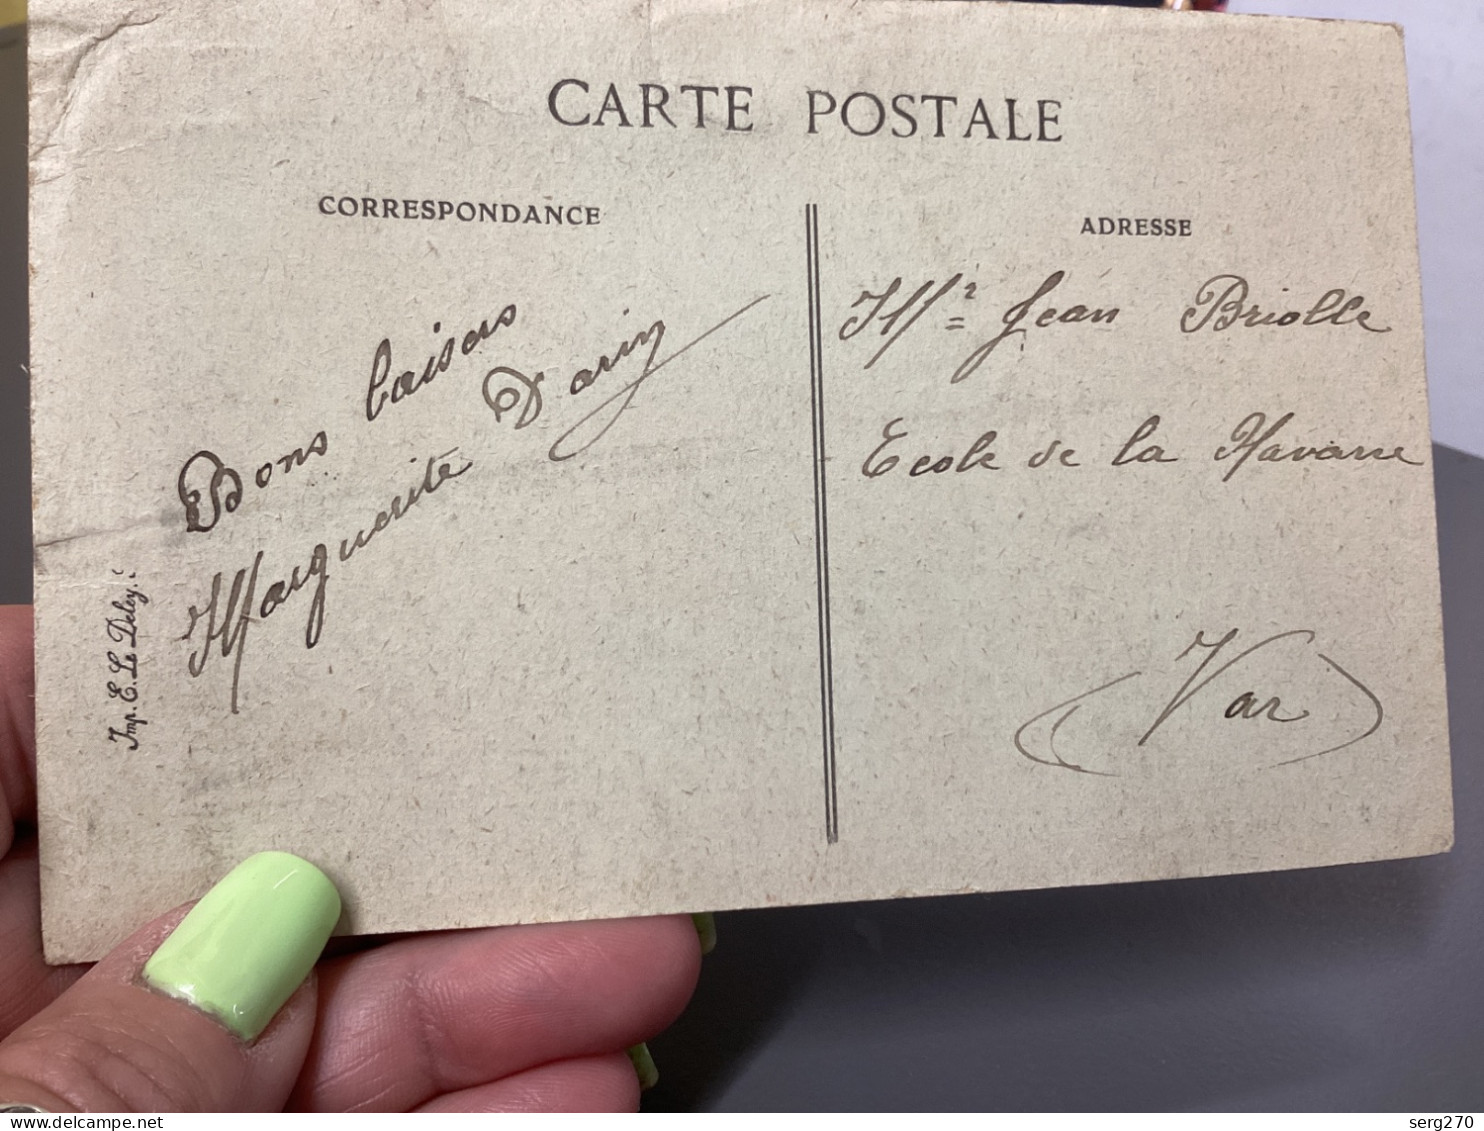 CARTE POSTALE
CORRESPONDANCE
ADRESSE
Bons baisers
Marguerite Darin
Imp. E. Le Deley.
Mr Jean Briolle
Ecole de la Navarre
Var
www.delcampe.net
serg270